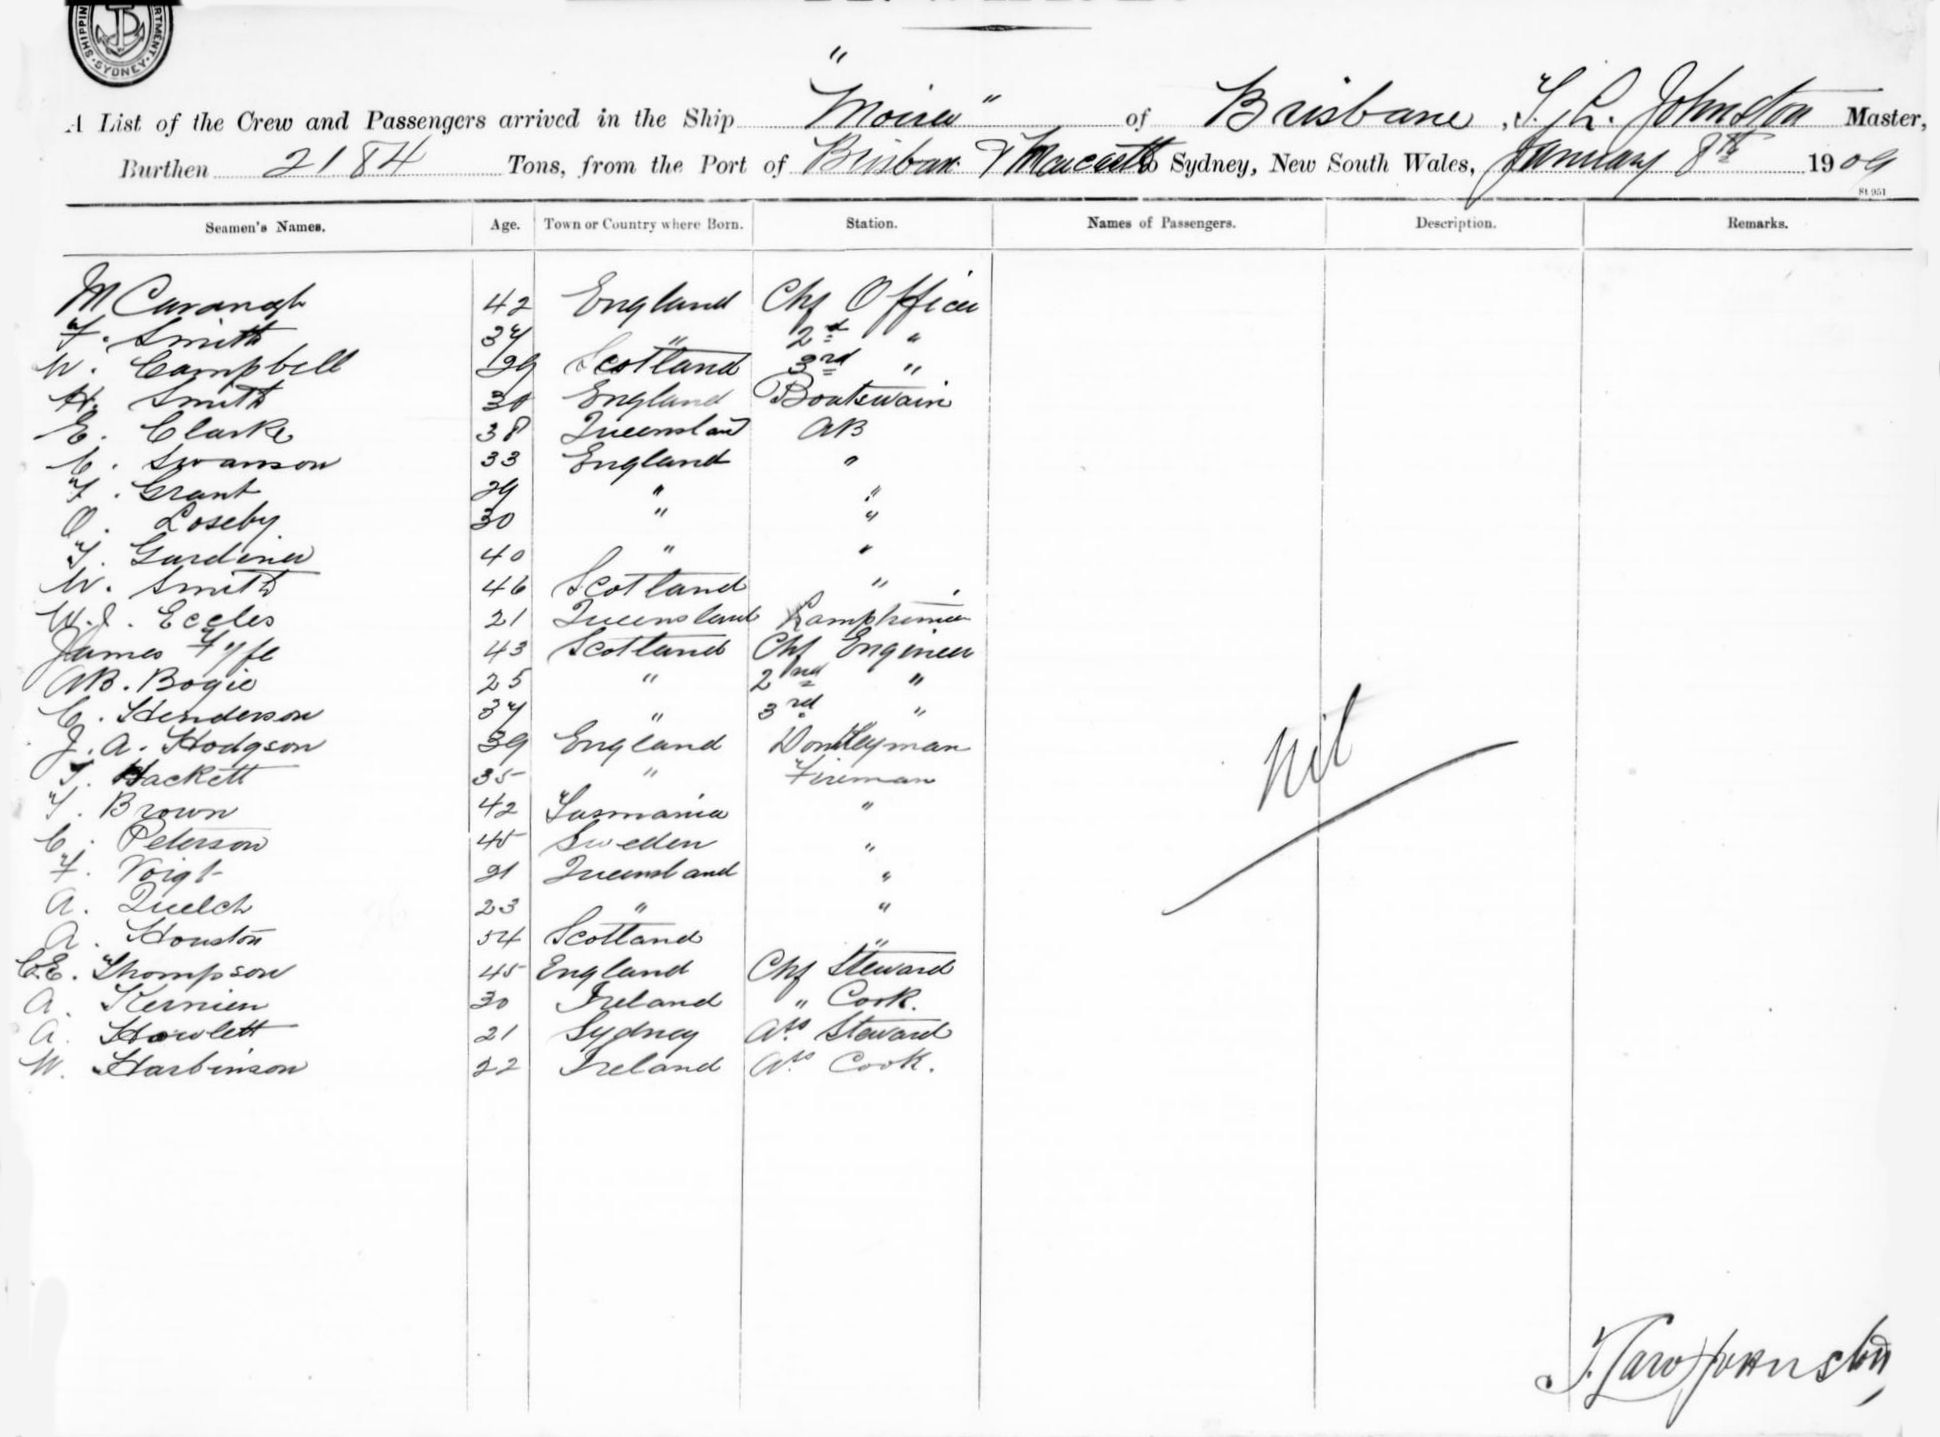 SHIPPING DEPARTMENT. SYDNEY.
A List of the Crew and Passengers arrived in the Ship "Moira" of Brisbane, T. L. Johnston Master,
Burthen 2184 Tons, from the Port of Brisbane & to Sydney, New South Wales, January 8th 1909
St 951
Seamen's Names. Age. Town or Country where Born. Station. Names of Passengers. Description. Remarks.
M Cavanagh 42 England Chf Officer
F. Smith 37 " 2nd "
W. Campbell 29 Scotland 3rd "
H. Smith 30 England Boatswain
E. Clarke 38 Queensland AB
C. Swanson 33 England "
F. Grant 29 " "
O. Loseby 30 " "
T. Gardiner 40 " "
W. Smith 46 Scotland "
W. J. Eccles 21 Queensland Lamptrimmer
James Fyfe 43 Scotland Chf Engineer
AB. Bogie 25 " 2nd "
C. Henderson 37 " 3rd "
J. A. Hodgson 39 England Donkeyman
T. Hackett 35 " Fireman
T. Brown 42 Tasmania "
C. Peterson 45 Sweden "
F. Voigt 21 Queensland "
A. Quelch 23 " "
A. Houston 54 Scotland "
C.E. Thompson 45 England Chf Steward
A. Kernien 30 Ireland " Cook.
A. Howlett 21 Sydney Ass Steward
W. Harbinson 22 Ireland Ass Cook.
Nil
T. Law Johnston